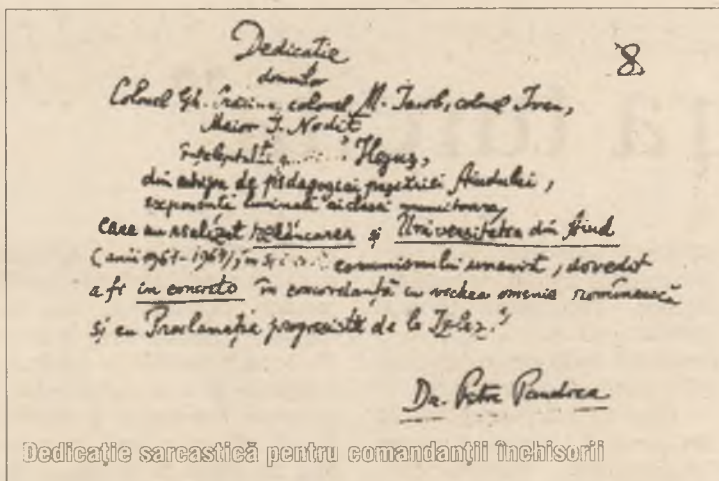 8.
Dedicație
domnilor
Colonel Gh. Crăciun, colonel M. Iacob, colonel Ivan,
Maior I. Nodit
Hegus,
din echipa de pedagogi Aiudului,
exponenți luminați ai clasei muncitoare,
care au realizat și Universitatea din Aiud
(anii 1961-1964), comunismului umanist, dovedit
a fi in concreto în concordanță cu vechea omenie românească
și cu Proclamația progresistă de la Izlaz."
Dr. Petre Pandrea
Dedicație sarcastică pentru comandanții închisorii